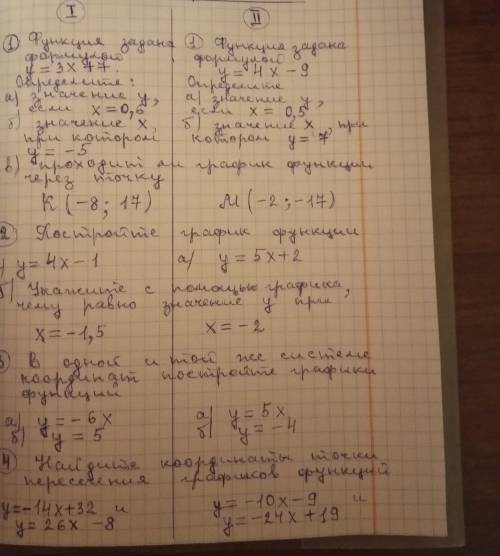 I II
1 Функция задана 1 Функция задана
формулой формулой
y = 3x 77. y = 4x - 9
Определите: Определите
а) значение y, а) значение y,
если x = 0,6 если x = 0,5
б) значение x, б) значение x, при
при котором котором y = 7
y = -5
в) проходит ли график функции
через точку
K (-8; 17) M (-2; -17)
2 Постройте график функции
) y = 4x - 1 а) y = 5x + 2
б) Укажите с помощью графика,
чему равно значение y при
x = -1,5 x = -2
3 В одной и той же системе
координат постройте графики
функций
а) y = -6x а) y = 5x
б) y = 5 б) y = -4
4 Найдите координаты точки
пересечения графиков функций
y = -14x + 32 и y = -10x - 9 и
y = 26x - 8 y = -24x + 19